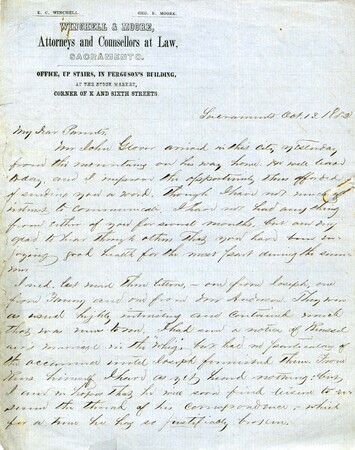 E. C. WINCHELL. GEO. R. MOORE.
WINCHELL & MOORE,
Attorneys and Counsellors at Law,
SACRAMENTO.
OFFICE, UP STAIRS, IN FERGUSON'S BUILDING,
AT THE STOCK MARKET,
CORNER OF K AND SIXTH STREETS.
Sacramento Oct. 13. 1852
My Dear Parents,
Mr John Glover arrived in this city yesterday
from the mountains on his way home. He will leave
today, and I improve the opportunity thus afforded
of sending you a word. Though I have not much of
interest to communicate. I have not had any thing
from either of you for several months, but am very
glad to hear through others that you have been en-
joying good health for the most part during the summer
I recd. last mail three letters, – one from Joseph, one
from Fanny and one from Mr Andrews. They were
as usual highly interesting and contained much
that was new to me. I had seen a notice of
marriage in the Whig, but had no particulars of
the occasion until Joseph furnished them. From
himself I have as yet heard nothing; but
I am in hopes that he will soon find leisure to re-
sume the thread of his correspondence, – which
for a time he has so justifiably broken.